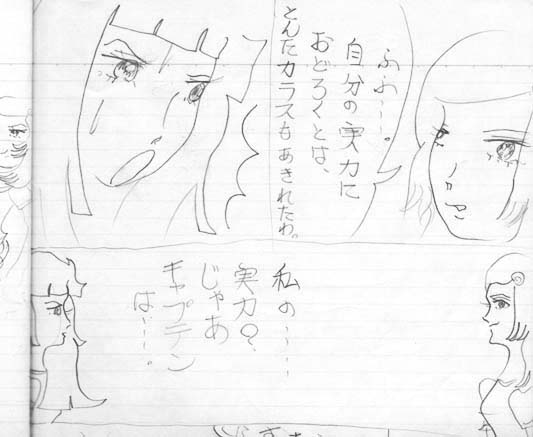 ふわ〜〜。
自分の実力に
おどろくとは、
とんだカラスもあきれたわ。
私の〜〜〜
実力?
じゃあ
キャプテン
は〜〜。